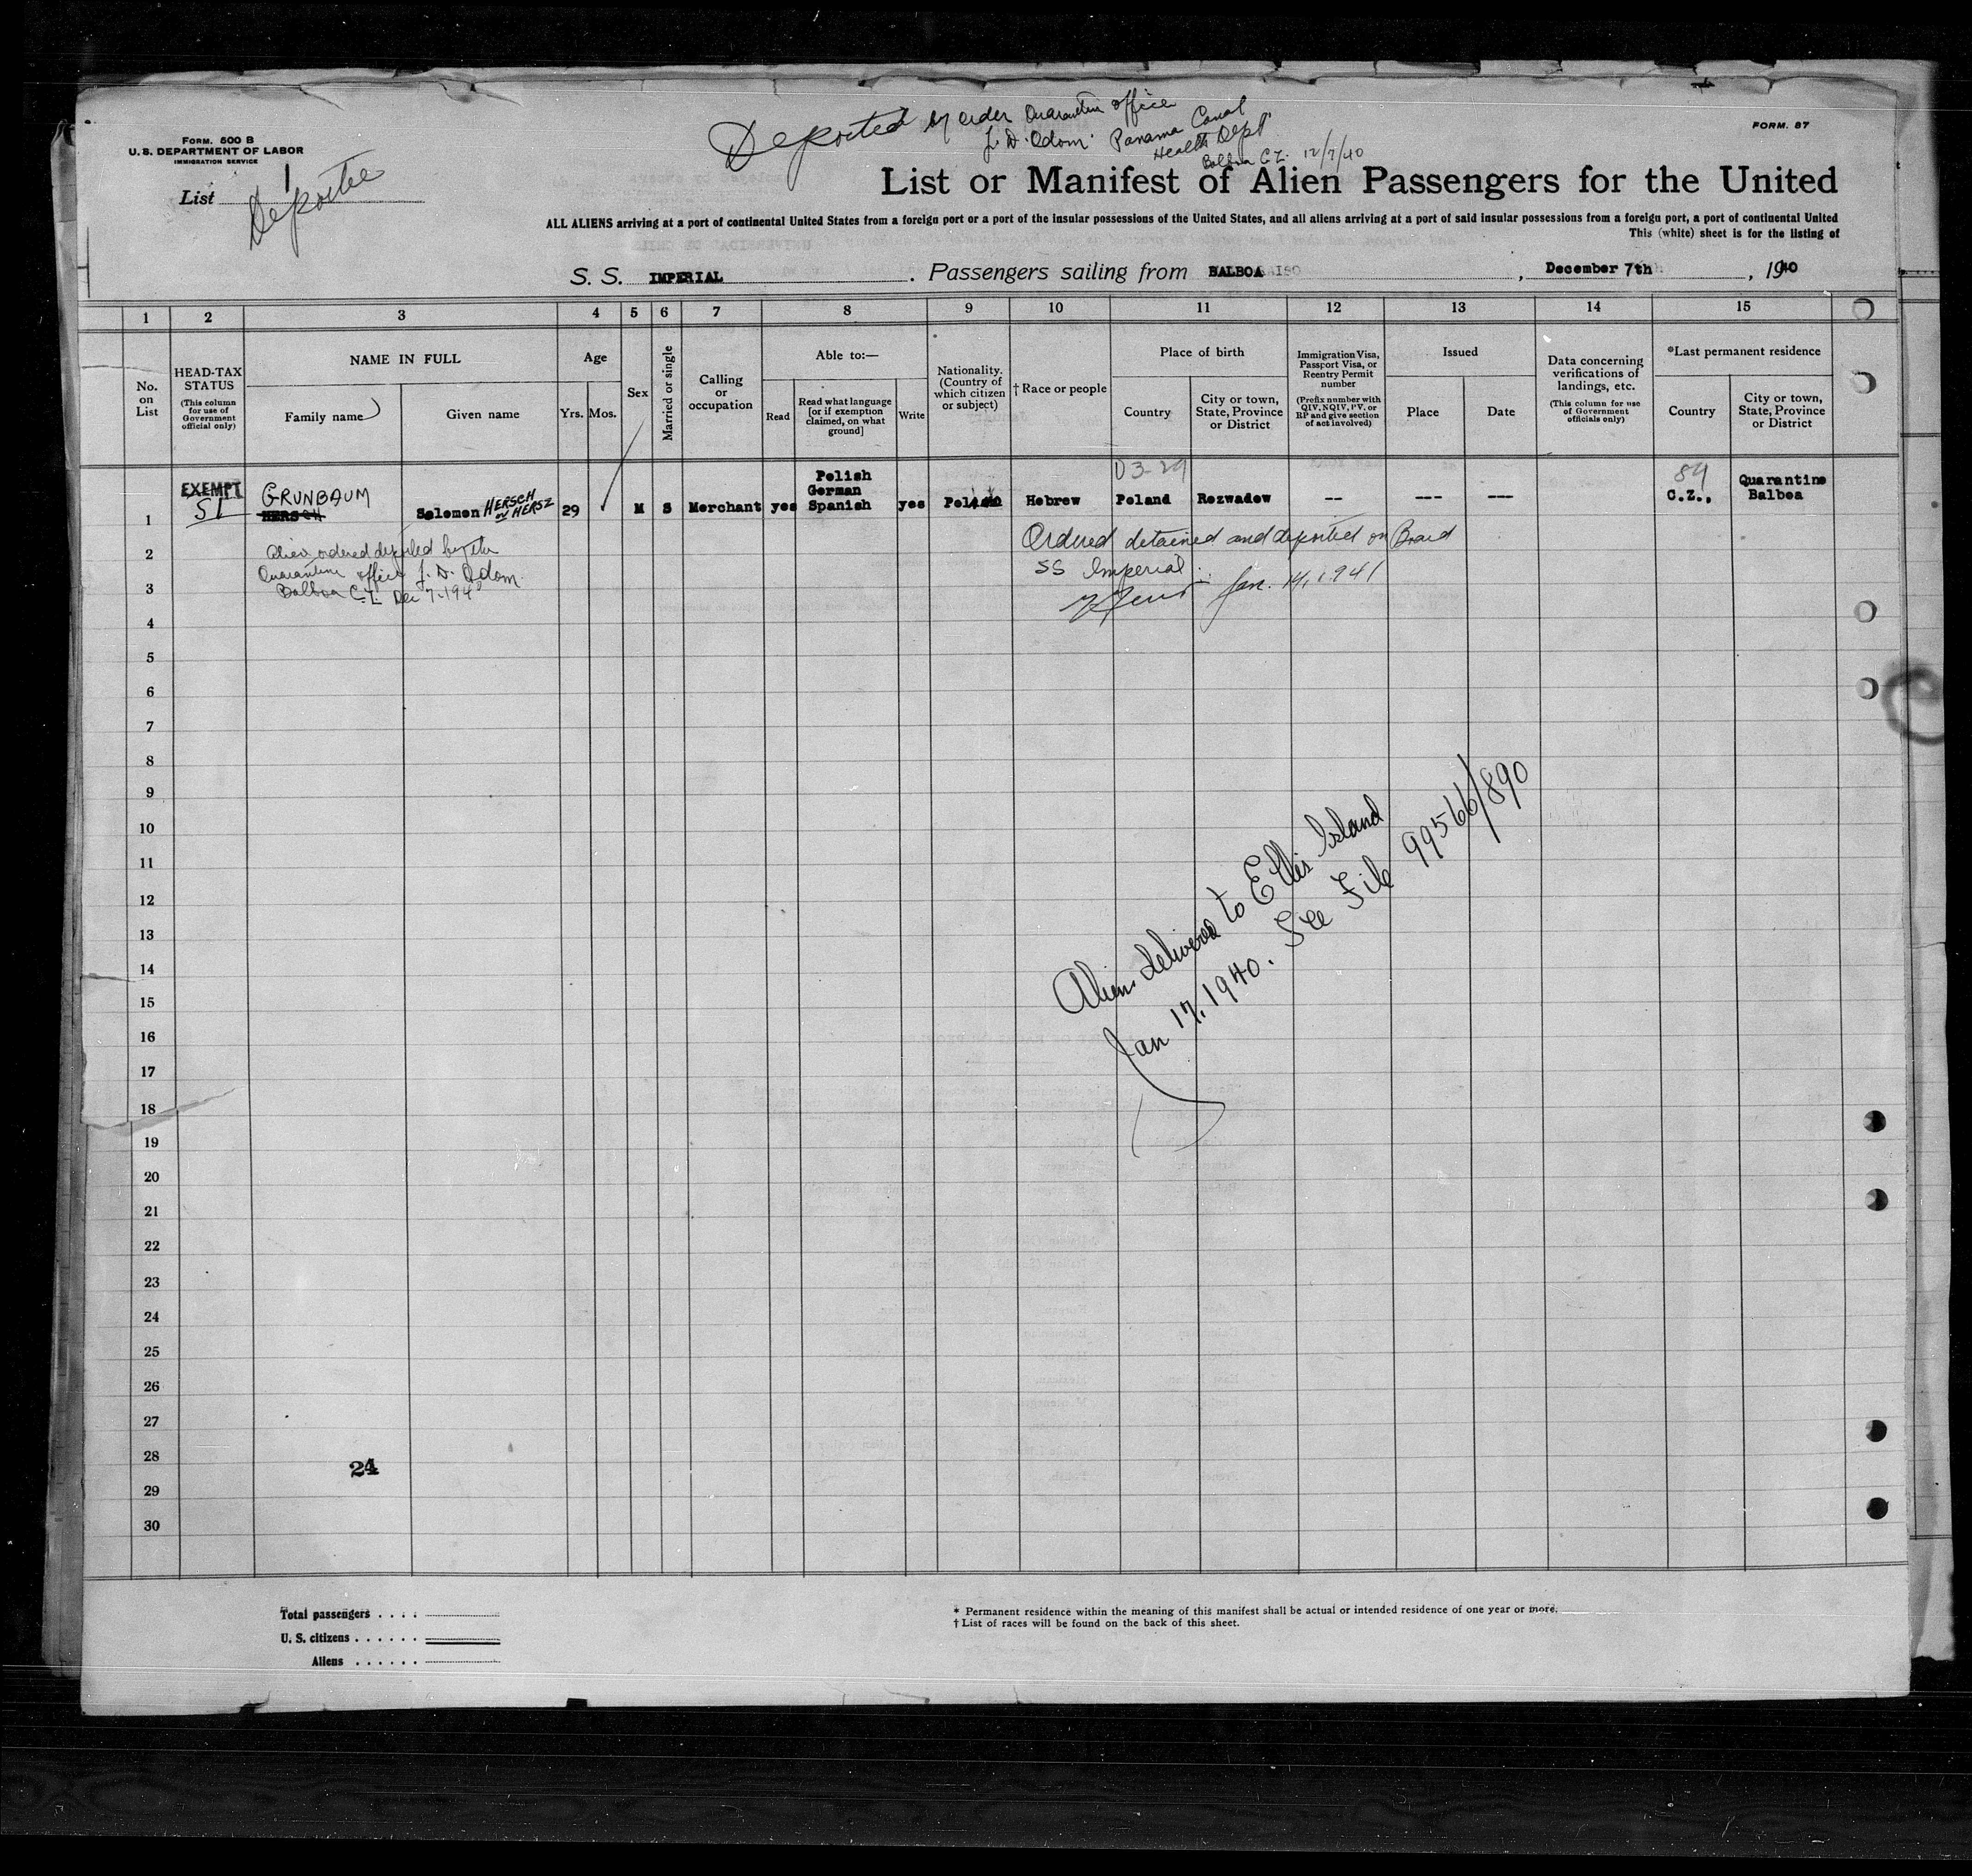 Deported by order Quarantine office
J. D. Odom. Panama Canal
Health Dept
Balboa C.Z. 12/7/40
FORM. 500 B
U. S. DEPARTMENT OF LABOR
IMMIGRATION SERVICE
FORM. 87
List 1
Deportee
List or Manifest of Alien Passengers for the United
ALL ALIENS arriving at a port of continental United States from a foreign port or a port of the insular possessions of the United States, and all aliens arriving at a port of said insular possessions from a foreign port, a port of continental United
This (white) sheet is for the listing of
S. S. IMPERIAL. Passengers sailing from BALBOA, December 7th, 1940
1 2 3 4 5 6 7 8 9 10 11 12 13 14 15
No. on List
HEAD-TAX STATUS
(This column for use of Government official only)
NAME IN FULL
Family name
Given name
Age
Yrs. Mos.
Sex
Married or single
Calling or occupation
Able to:—
Read
Read what language [or if exemption claimed, on what ground]
Write
Nationality. (Country of which citizen or subject)
† Race or people
Place of birth
Country
City or town, State, Province or District
Immigration Visa, Passport Visa, or Reentry Permit number
(Prefix number with QIV, NQIV, PV, or RP and give section of act involved)
Issued
Place
Date
Data concerning verifications of landings, etc.
(This column for use of Government officials only)
*Last permanent residence
Country
City or town, State, Province or District
D 3-29
84
1 EXEMPT SI GRUNBAUM HERSCH Salomon HERSCH or HERSZ 29 M S Merchant yes Polish German Spanish yes Hebrew Poland Rozwadow -- --- --- C.Z., Quarantine Balboa
Alien ordered deported by the
Quarantine office J. D. Odom.
Balboa C.Z. Dec 7-1940
Ordered detained and deported on Board
SS Imperial.
Jan. 14, 1941
2
3
4
5
6
7
8
9
10
11
12
13
14
15
16
17
18
19
20
21
22
23
24
25
26
27
28
29
30
Alien delivered to Ellis Island
Jan 17, 1940. See File 99566/890
24
Total passengers . . . .
U. S. citizens . . . . . .
Aliens . . . . . .
* Permanent residence within the meaning of this manifest shall be actual or intended residence of one year or more.
† List of races will be found on the back of this sheet.